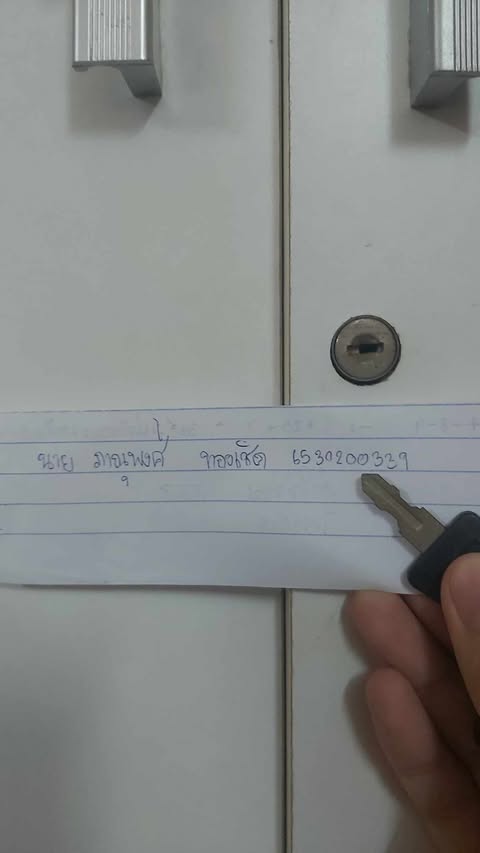 นาย ภาณุพงศ์ ทองเชิด 6530200339